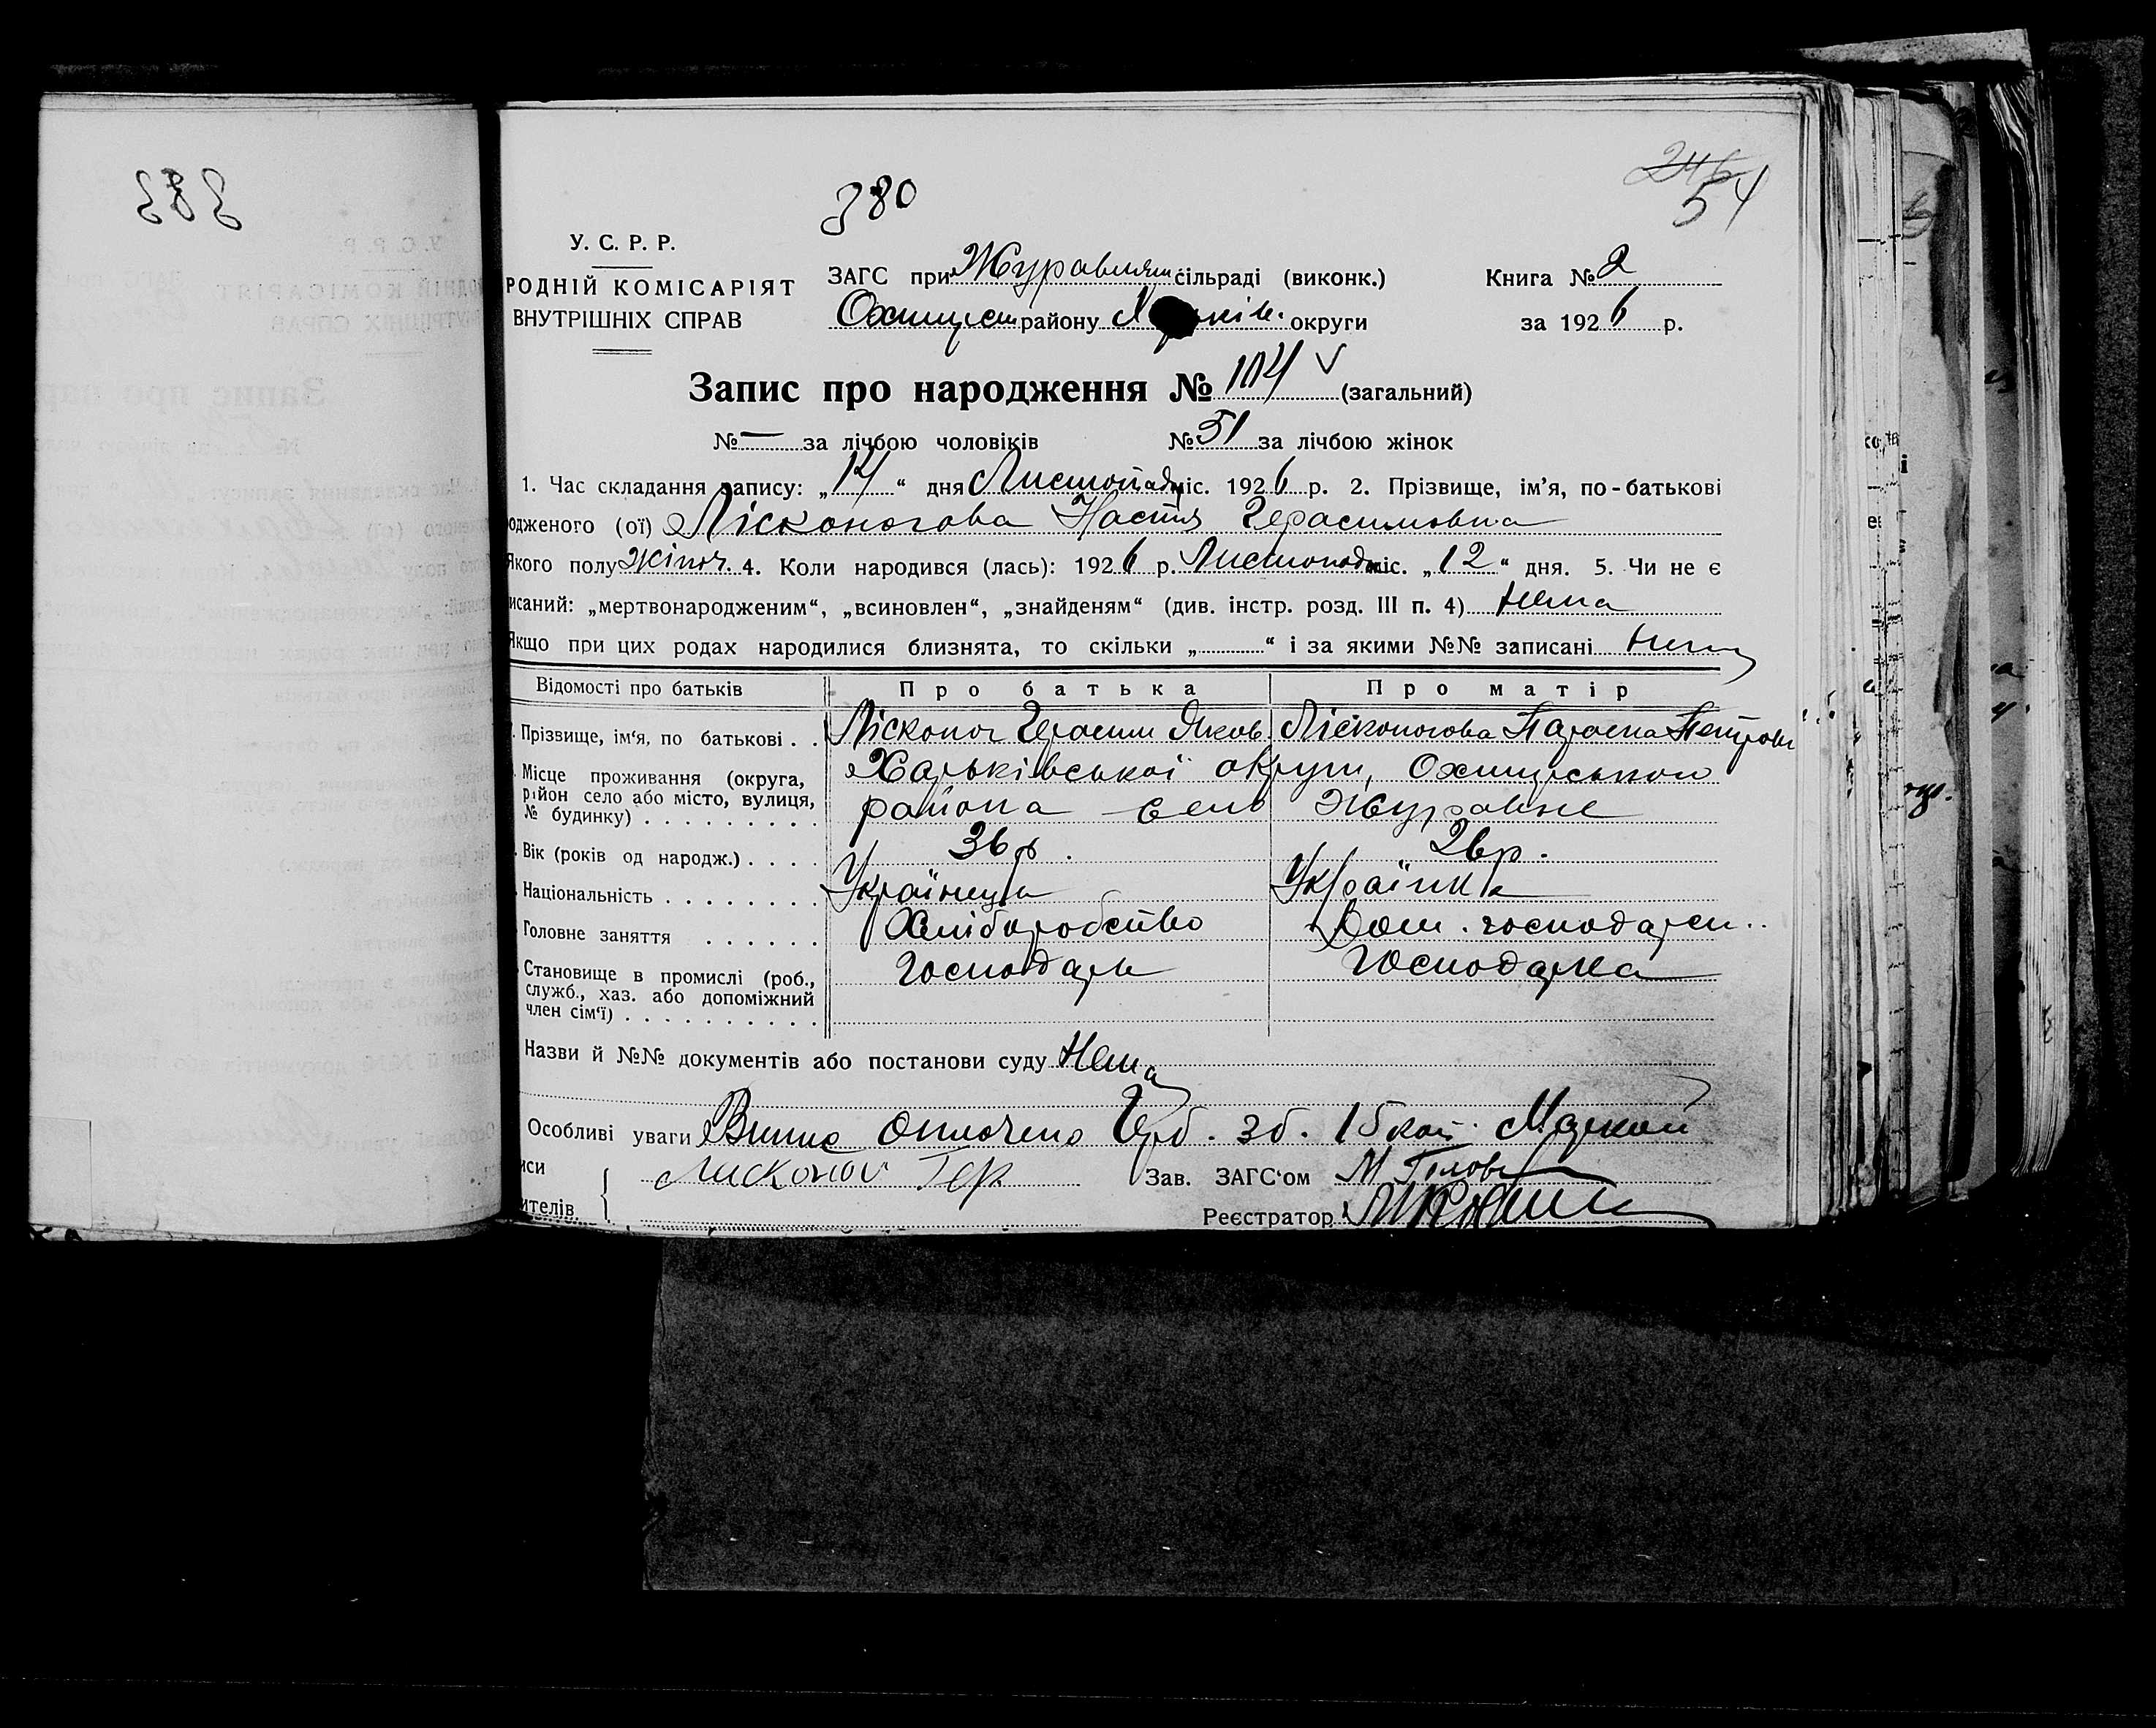 380
246
54
У. С. Р. Р.
РОДНІЙ КОМІСАРІЯТ
ВНУТРІШНІХ СПРАВ
ЗАГС при Журавлям сільраді (виконк.)
Охтирсм району округи
Книга № 2
за 1926 р.
Запис про народження № 104 (загальний)
№ — за лічбою чоловіків № 51 за лічбою жінок
1. Час складання запису: „14“ дня Листопада міс. 1926 р. 2. Прізвище, ім'я, по-батькові
одженого (ої) Лісконогова Настя Герасимовна
Якого полу жіноч. 4. Коли народився (лась): 1926 р. Листопад міс. „12“ дня. 5. Чи не є
исаний: „мертвонародженим“, „всиновлен“, „знайденям“ (див. інстр. розд. III п. 4) нема
Якщо при цих родах народилися близнята, то скільки „ “ і за якими №№ записані нема
Відомості про батьків Про батька Про матір
Прізвище, ім'я, по батькові . . Лісконог Герасим Яков. Лісконогова Параска Петровн
Місце проживання (округа, район село або місто, вулиця, № будинку) . . . . . . . . .
Харьківської округи, Охтирського
района село Журавне
Вік (років од народж.) . . . . 36 р. 26 р.
Національність . . . . . . . . Українець Українка
Головне заняття . . . . . . Хліборобство Дом. господарст..
Становище в промислі (роб., служб., хаз. або допоміжний член сім'ї) . . . . . . . . . .
Господарь Господарка
Назви й №№ документів або постанови суду Нема
Особливі уваги Витпс Оплочено Герб. зб. 15 коп. Маркой
иси
ителів.
Лисконог Гер
Зав. ЗАГС'ом
Реєстратор
383